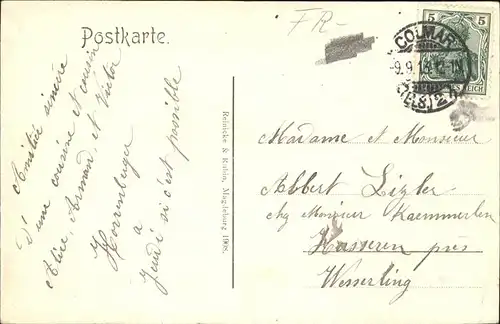 Postkarte.
FR-
5 5
REICH
COLMAR
9.9.13.12-1N
(ELS.) 2
Amitié sincère
d'une cousine et cousin
Alice, Armand, et Victor
Horrenberger
à
Jeudi si c'est possible
Reinicke & Rubin, Magdeburg 1908.
Madame et Monsieur
Albert Lizler
chz Monsieur Kaemmerlen
Husseren près
Wesserling